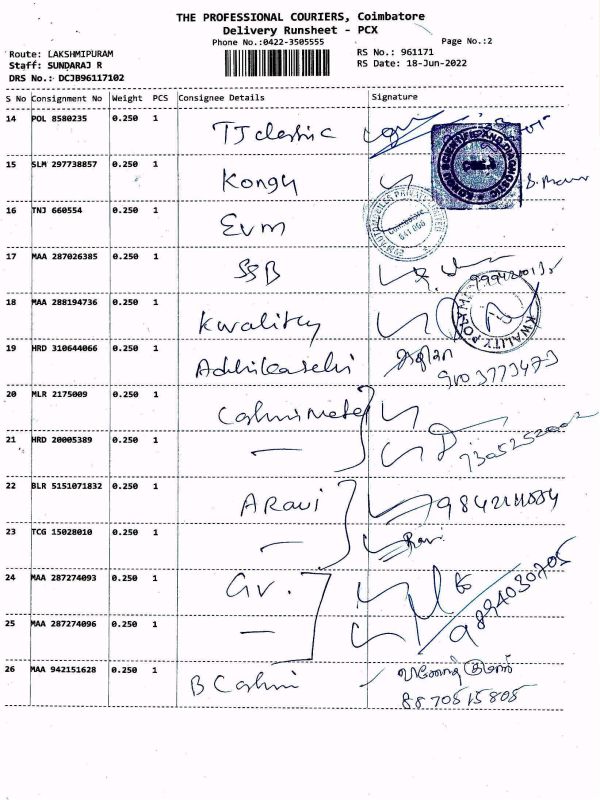 THE PROFESSIONAL COURIERS, Coimbatore
Delivery Runsheet - PCX
Phone No.:0422-3505555
Page No.:2
Route: LAKSHMIPURAM
RS No.: 961171
Staff: SUNDARAJ R
RS Date: 18-Jun-2022
DRS No.: DCJB96117102
S No Consignment No Weight PCS Consignee Details Signature
14 POL 8580235 0.250 1 TJ classic
15 SLM 297738857 0.250 1 Kongu
16 TNJ 660554 0.250 1 Evm
Coimbatore
641 006
17 MAA 287026385 0.250 1 SSB
18 MAA 288194736 0.250 1 Kwality
KWALITY POLYMA
19 HRD 310644066 0.250 1
9103773473
20 MLR 2175009 0.250 1
21 HRD 20005389 0.250 1 —
22 BLR 5151071832 0.250 1 A Ravi
23 TCG 15028010 0.250 1 — Ravi
24 MAA 287274093 0.250 1 GV.
25 MAA 287274096 0.250 1 — 9894030705
26 MAA 942151628 0.250 1 B Cashmi
8870515805